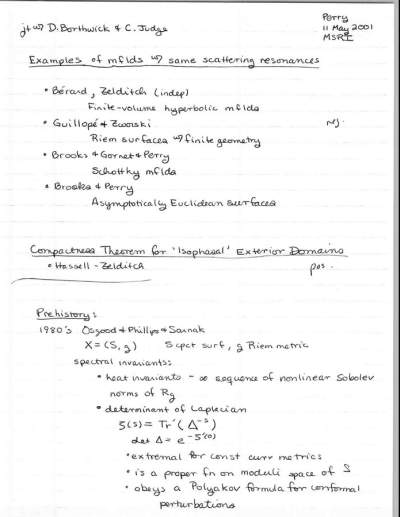 jt w/ D. Borthwick & C. Judge
Perry
11 May 2001
MSRI
Examples of mflds w/ same scattering resonances
• Bérard, Zelditch (indep)
Finite-volume hyperbolic mflds
• Guillopé & Zworski
neg.
Riem surfaces w/ finite geometry
• Brooks & Gornet & Perry
Schottky mflds
• Brooks & Perry
Asymptotically Euclidean surfaces
Compactness Theorem for 'Isophasal' Exterior Domains
• Hassell - Zelditch
pos.
Prehistory:
1980's Osgood & Phillips & Sarnak
X = (S, g) S cpct surf, g Riem metric
spectral invariants:
• heat invariants - ∞ sequence of nonlinear Sobolev
norms of Rg
• determinant of Laplacian
ζ(s) = Tr'(Δ^-s)
det Δ = e^-ζ'(0)
• extremal for const curv metrics
• is a proper fn on moduli space of S
• obeys a Polyakov formula for conformal
perturbations